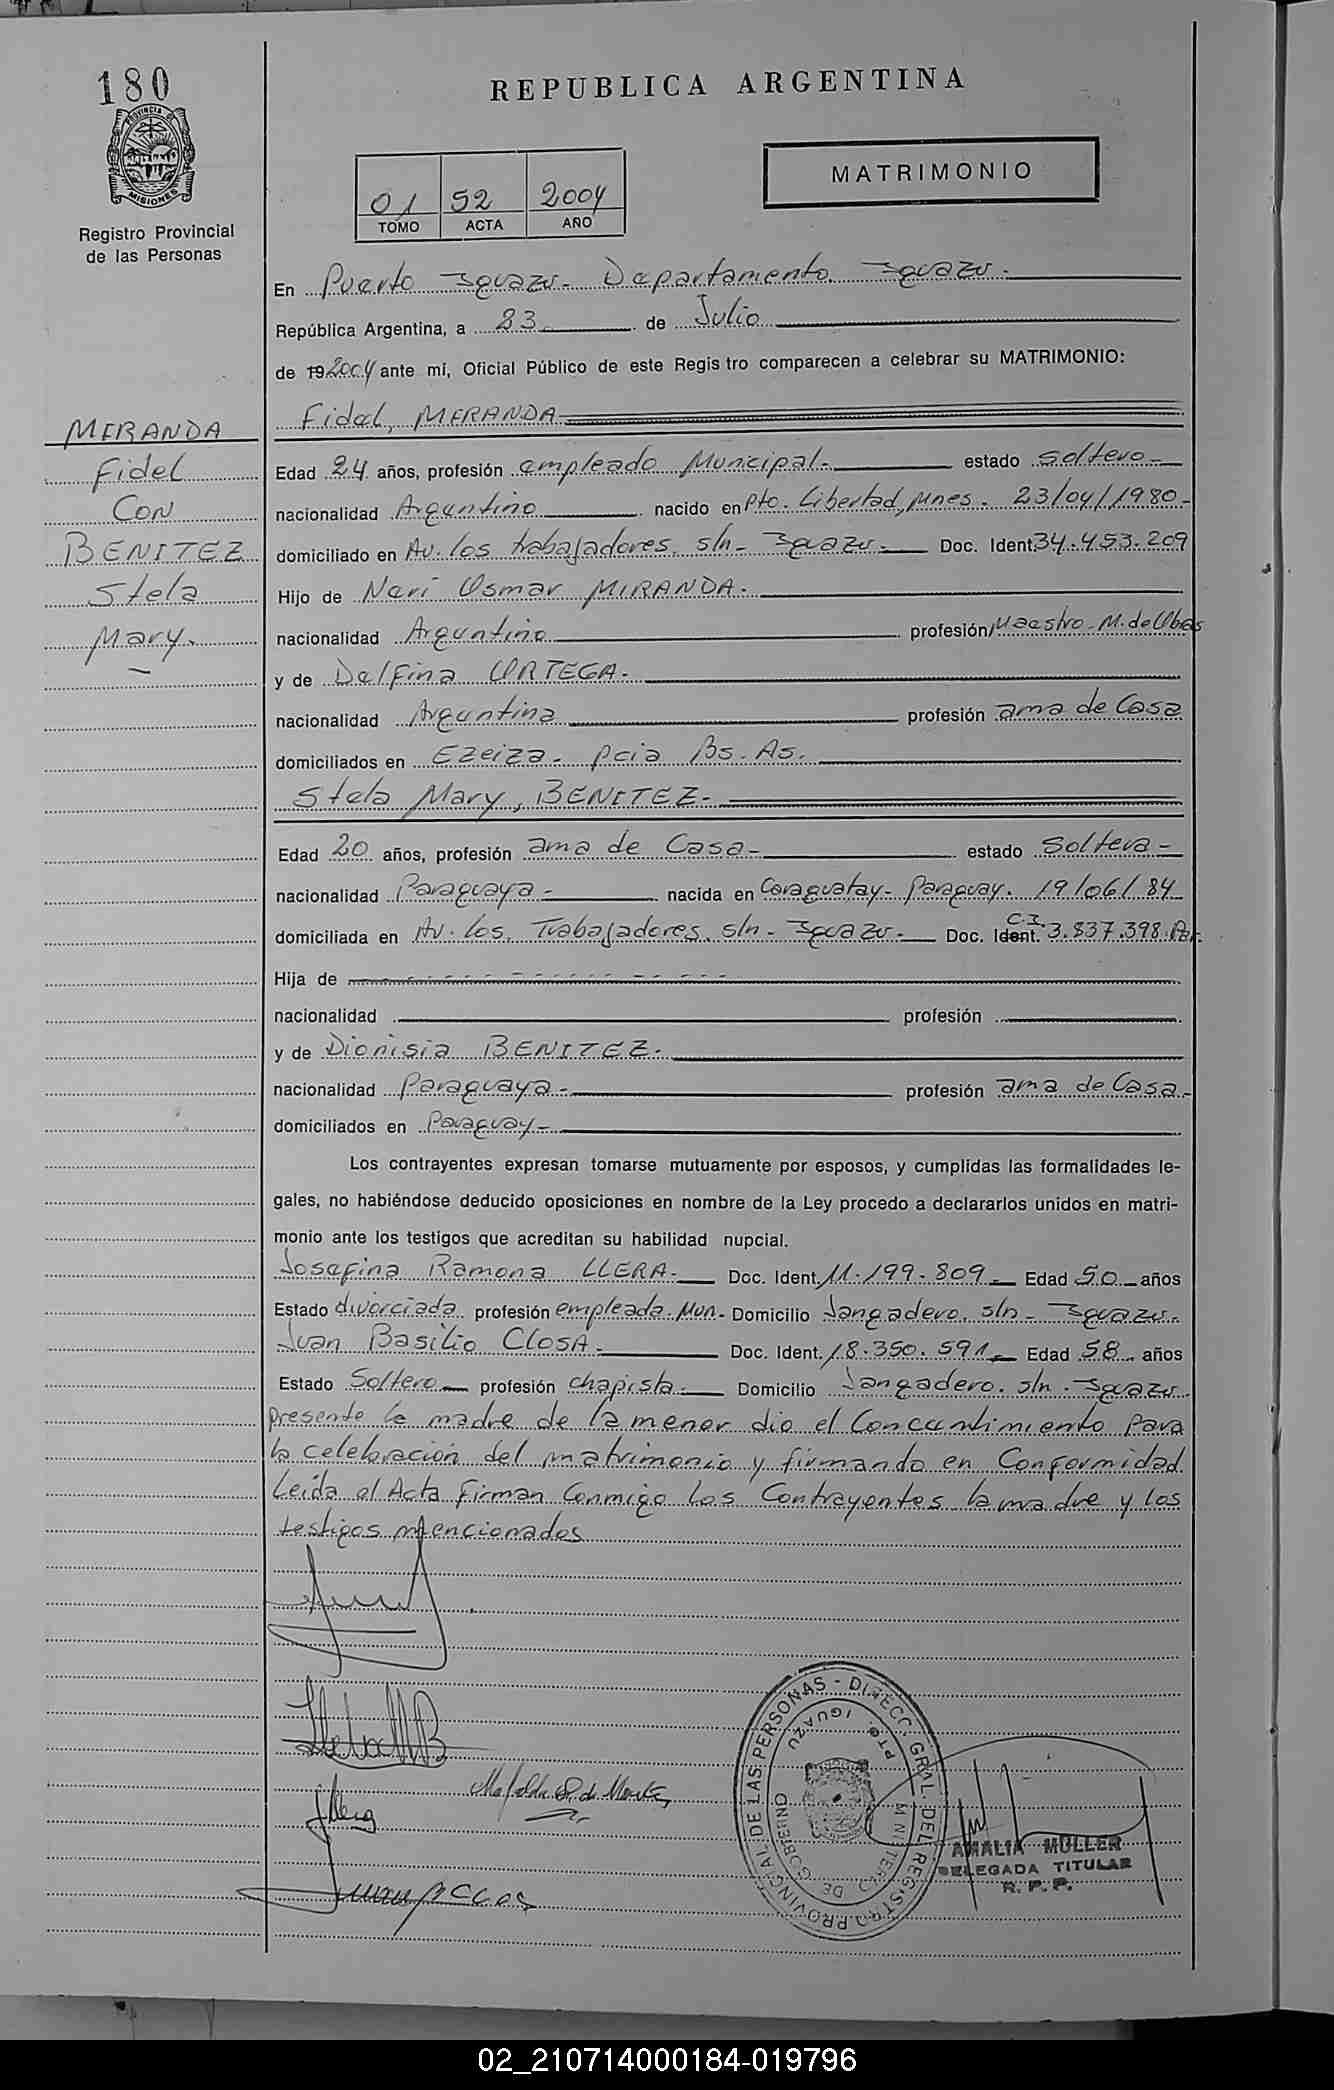 180
REPUBLICA ARGENTINA
MATRIMONIO
PROVINCIA DE MISIONES
Registro Provincial
de las Personas
01 52 2004
TOMO ACTA AÑO
En Puerto Iguazu - Departamento Iguazu -
República Argentina, a 23 de Julio
de 19 2004 ante mí, Oficial Público de este Registro comparecen a celebrar su MATRIMONIO:
Fidel, MIRANDA
MIRANDA
Fidel
CON
BENITEZ
Stela
Mary.
Edad 24 años, profesión empleado Municipal - estado soltero -
nacionalidad Argentino nacido en Pto. Libertad, Mnes. 23/04/1980 -
domiciliado en Av. los trabajadores s/n - Iguazu - Doc. Ident. 34.453.209
Hijo de Neri Osmar MIRANDA.
nacionalidad Argentino profesión Maestro M. de Obas
y de Delfina ORTEGA.
nacionalidad Argentina profesión ama de Casa
domiciliados en Ezeiza - pcia Bs. As.
Stela Mary, BENITEZ -
Edad 20 años, profesión ama de Casa - estado soltera -
nacionalidad Paraguaya - nacida en Caraguatay - Paraguay. 19/06/84
domiciliada en Av. los Trabajadores s/n - Iguazu - Doc. Ident. C.I. 3.837.398 Par.
Hija de
nacionalidad profesión
y de Dionisia BENITEZ.
nacionalidad Paraguaya - profesión ama de Casa -
domiciliados en Paraguay -
Los contrayentes expresan tomarse mutuamente por esposos, y cumplidas las formalidades le-
gales, no habiéndose deducido oposiciones en nombre de la Ley procedo a declararlos unidos en matri-
monio ante los testigos que acreditan su habilidad nupcial.
Josefina Ramona LLERA - Doc. Ident. 11.199.809 - Edad 50 años
Estado divorciada profesión empleada Mun - Domicilio Jangadero s/n - Iguazu -
Juan Basilio CLOSA - Doc. Ident. 18.350.591 - Edad 58 años
Estado Soltero profesión chapista - Domicilio Jangadero s/n - Iguazu
presente la madre de la menor dio el Concentimiento para
la celebración del matrimonio y firmando en Conformidad
Leida el Acta firman Conmigo los Contrayentes la madre y los
testigos mencionados
DIRECC. GRAL. DEL REGISTRO PROVINCIAL DE LAS PERSONAS -
PTO. IGUAZU
MINISTERIO DE GOBIERNO
AMALIA MULLER
DELEGADA TITULAR
R. P. P.
02_210714000184-019796